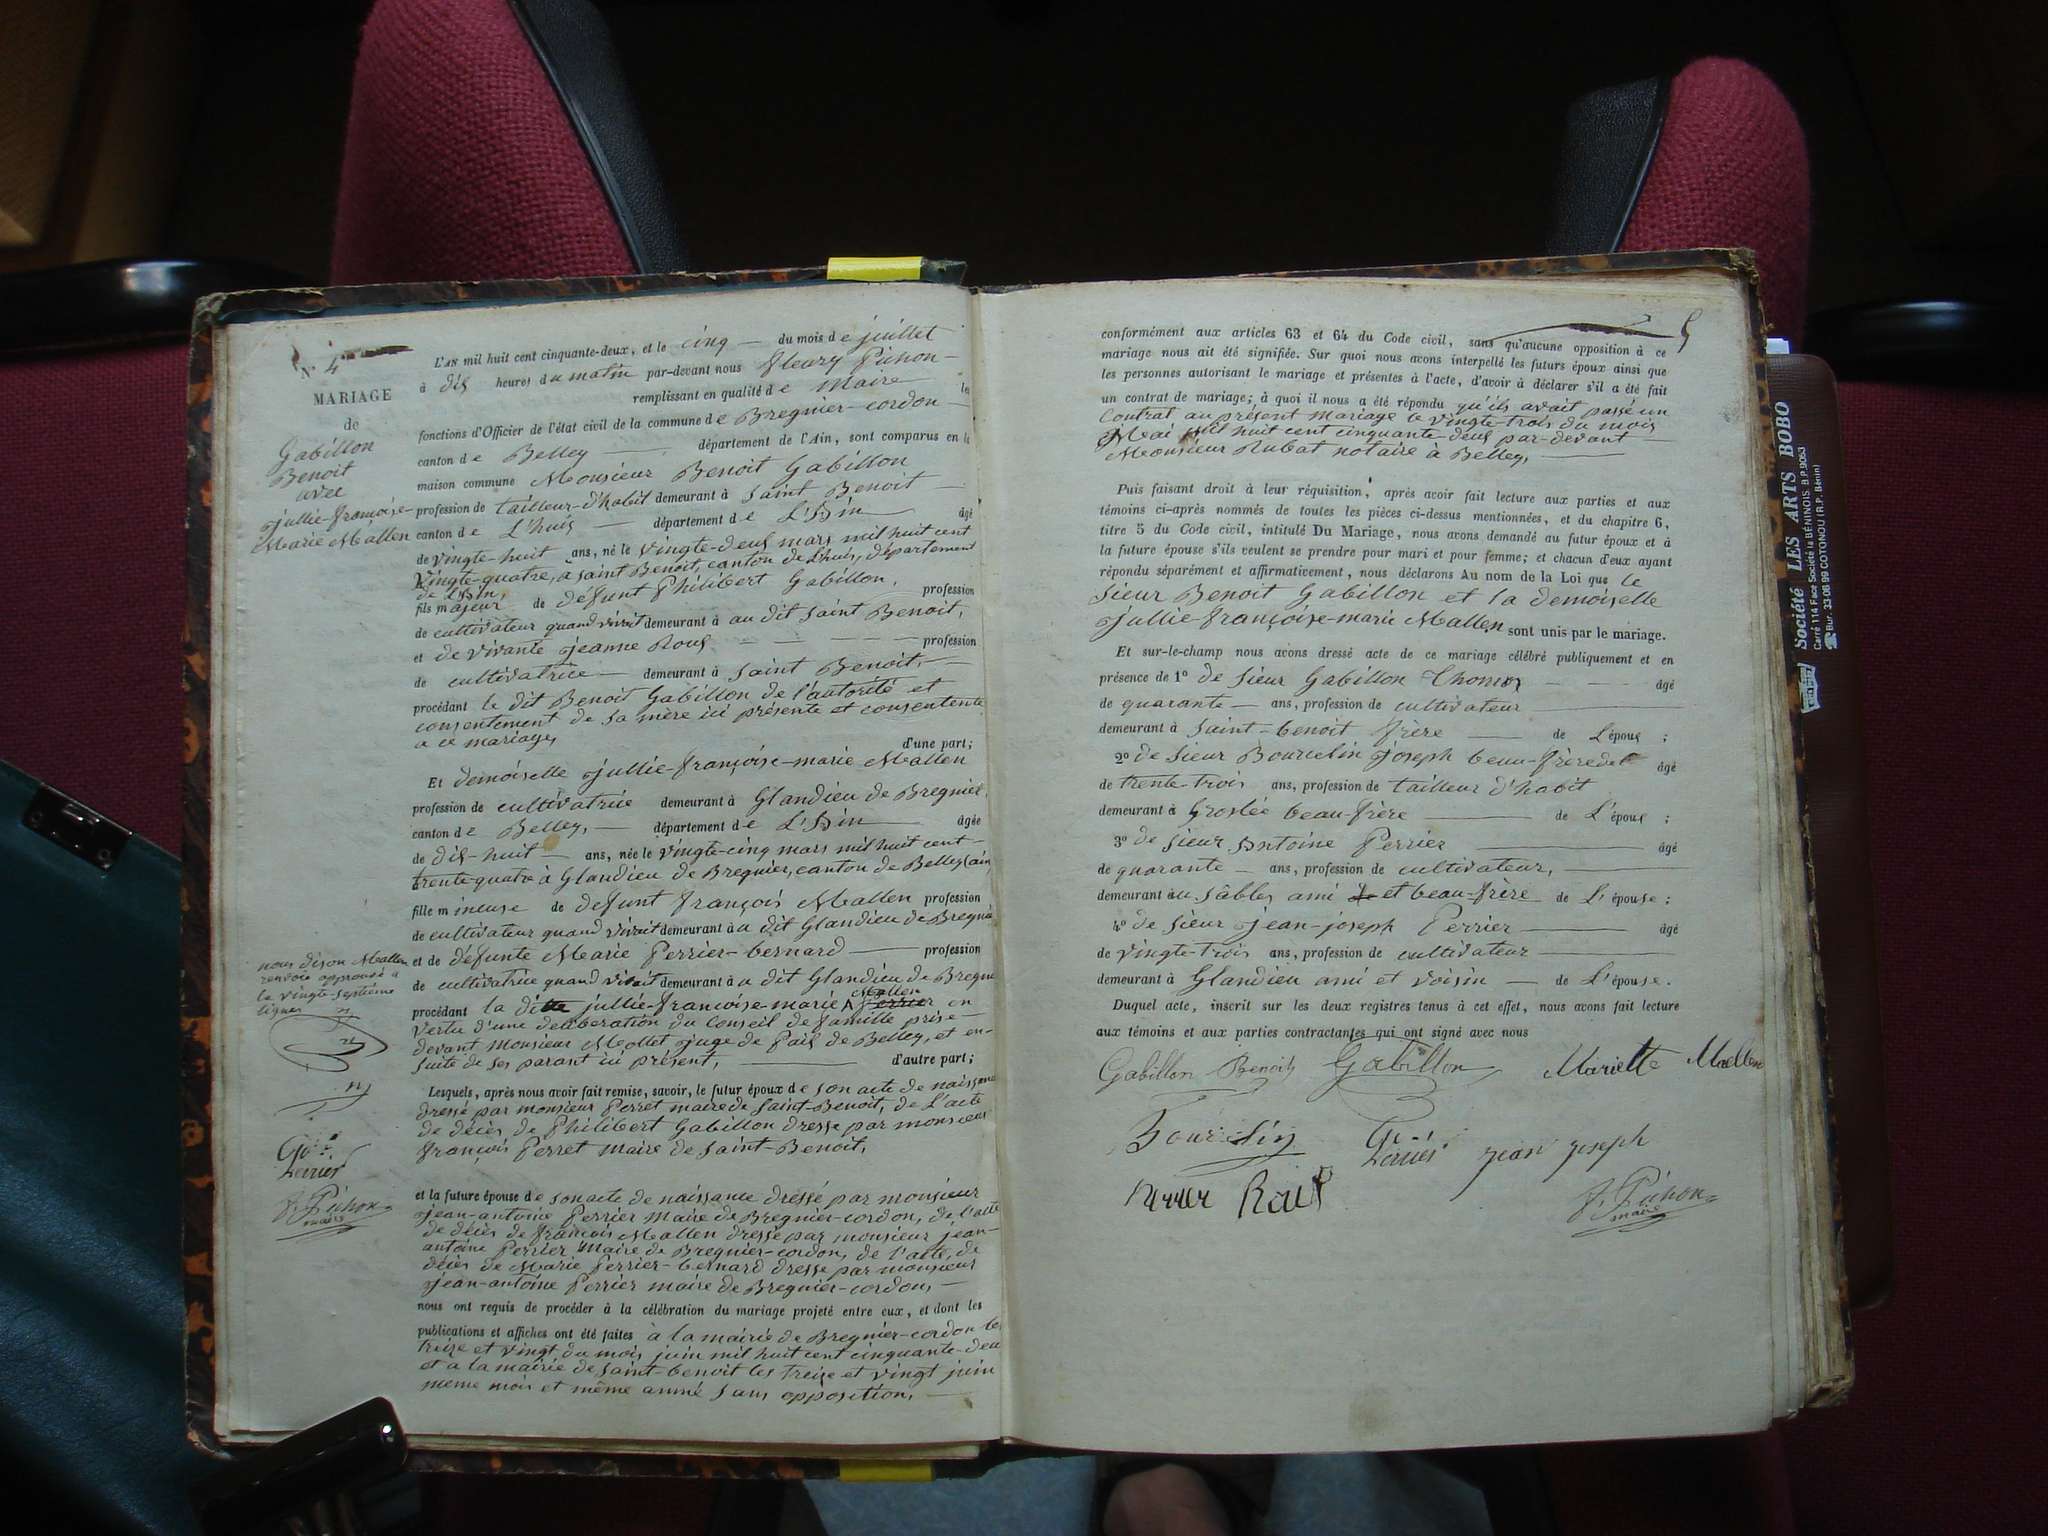 N° 4
MARIAGE
de
Gabillon
Benoit
avec
jullie-françoise-
Marie Mallen
L'AN mil huit cent cinquante-deux, et le cinq du mois de juillet
à dix heures du matin par-devant nous fleury Pichon
remplissant en qualité de Maire les
fonctions d'Officier de l'état civil de la commune de Bregnier-cordon
canton de Belley département de l'Ain, sont comparus en la
maison commune Monsieur Benoit Gabillon
profession de tailleur-d'habit demeurant à Saint Benoit
canton de L'huis département de L'Ain âgé
de vingte-huit ans, né le vingte-deux mars mil huit cent
vingte-quatre, à saint Benoit, canton de L'huis, département
de L'Ain,
fils majeur de défunt Philibert Gabillon, profession
de cultivateur quand vivait demeurant à au dit Saint Benoit,
et de vivante jeanne Roux profession
de cultivatrice demeurant à saint Benoit,
procédant le dit Benoit Gabillon de l'autorité et
consentement de sa mère ici présente et consentente
a ce mariage, d'une part;
Et demoiselle jullie-françoise-marie Mallen
profession de cultivatrice demeurant à Glandieu de Bregnier,
canton de Belley, département de L'Ain âgée
de dix-huit ans, née le vingte-cinq mars mil huit cent
trente-quatre à Glandieu de Bregnier, canton de Belley (ain
fille mineuse de défunt françois Mallen profession
de cultivateur quand vivait demeurant à u dit Glandieu de Bregnie
et de défunte Marie Perrier-bernard profession
de cultivatrice quand vivait demeurant à u dit Glandieu de Bregnie
procédant la ditte jullie-françoise-marie Mallen Perrier en
vertu d'une deliberation du Conseil de famille prise
devant monsieur Mollet juge de Paix de Belley, et en-
suite de ses parant ici présent, d'autre part;
nous dison Mallen
renvoie approuvé a
la vingte-septième
lignes
Perrier
f. Pichon
maire
Lesquels, après nous avoir fait remise, savoir, le futur époux de son acte de naissance
dressé par monsieur Perret maire de Saint-Benoit, de L'acte
de décès de Philibert Gabillon dresse par monsieur
françois Perret maire de Saint-Benoit,
et la future épouse de son acte de naissance dressé par monsieur
jean-antoine Perrier Maire de Bregnier-cordon, de l'acte
de décès de françois Mallen dressé par monsieur jean-
antoine Perrier Maire de Bregnier-cordon, de l'acte, de
décès de Marie Perrier-bernard dresse par monsieur
jean-antoine Perrier maire de Bregnier-cordon,
nous ont requis de procéder à la célébration du mariage projeté entre eux, et dont les
publications et affiches ont été faites à la mairie de Bregnier-cordon les
treize et vingt du mois juin mil huit cent cinquante-deux
et a la mairie de saint-benoit les treize et vingt juin
meme mois et même année sans opposition,
5
conformément aux articles 63 et 64 du Code civil, sans qu'aucune opposition à ce
mariage nous ait été signifiée. Sur quoi nous avons interpellé les futurs époux ainsi que
les personnes autorisant le mariage et présentes à l'acte, d'avoir à déclarer s'il a été fait
un contrat de mariage; à quoi il nous a été répondu qu'ils avait passé un
Contrat au présent mariage le vingte-trois du mois
Mai mil huit cent cinquante-deux par-devant
Monsieur Rubat notaire à Belley,
Puis faisant droit à leur réquisition, après avoir fait lecture aux parties et aux
témoins ci-après nommés de toutes les pièces ci-dessus mentionnées, et du chapitre 6,
titre 5 du Code civil, intitulé Du Mariage, nous avons demandé au futur époux et à
la future épouse s'ils veulent se prendre pour mari et pour femme; et chacun d'eux ayant
répondu séparément et affirmativement, nous déclarons Au nom de la Loi que le
Sieur Benoit Gabillon et la demoiselle
jullie-françoise-marie Mallen sont unis par le mariage.
Et sur-le-champ nous avons dressé acte de ce mariage célébré publiquement et en
présence de 1° de Sieur Gabillon Thomas âgé
de quarante ans, profession de cultivateur
demeurant à Saint-benoit frère de L'époux ;
2° de Sieur Bourcelin joseph beau-frère de L' âgé
de trente-trois ans, profession de tailleur d'habit
demeurant à Groslée beau-frère de L'époux ;
3° de Sieur Antoine Perrier âgé
de quarante ans, profession de cultivateur,
demeurant au Sâbles ami et beau-frère de L'épouse ;
4° de Sieur jean-joseph Perrier âgé
de vingte-trois ans, profession de cultivateur
demeurant à Glandieu ami et voisin de L'épouse.
Duquel acte, inscrit sur les deux registres tenus à cet effet, nous avons fait lecture
aux témoins et aux parties contractantes qui ont signé avec nous
Gabillon Benoit Gabillon Mariette Maellen
Bourcelin Perrier jean joseph
Roux f. Pichon
maire
Société LES ARTS BOBO
Carré 114 Face Société la BÉNINOIS B.P. 9053
Bur. 33-06 99 COTONOU (R.P. Bénin)